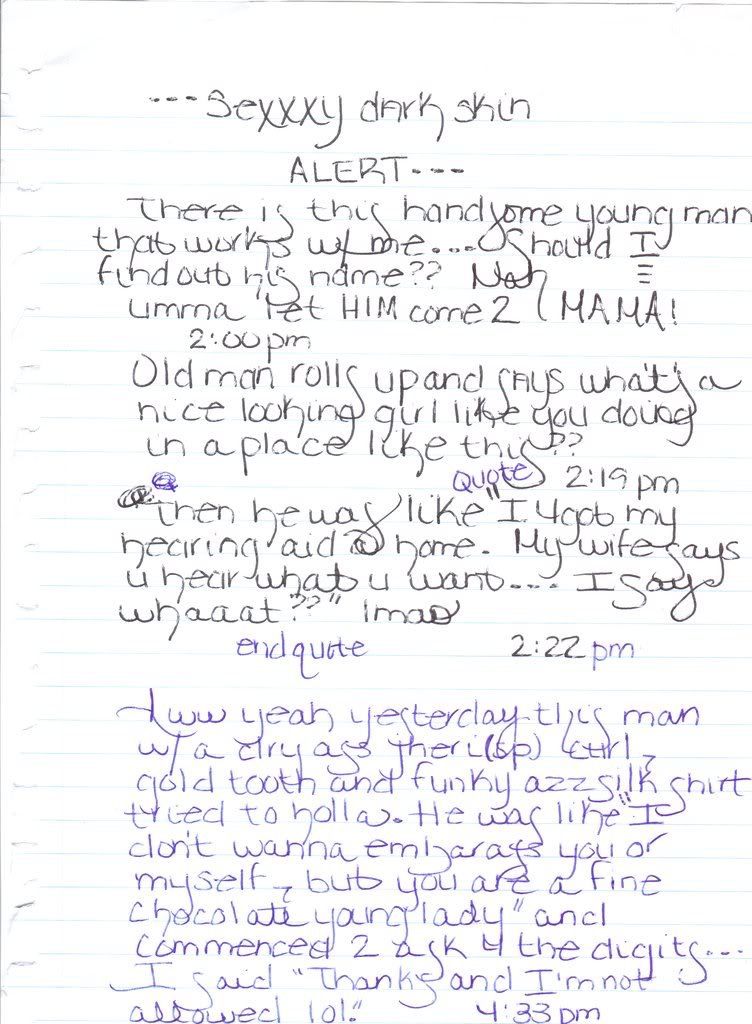 ---Sexxxy dark skin
ALERT---
There is this handsome young man
that works w/ me.... Should I
find out his name?? Nah
umma let HIM come 2 MAMA!
2:00pm
Old man rolls up and says what's a
nice looking girl like you doing
in a place like this??
Quote 2:19 pm
Then he was like "I 4got my
hearing aid @ home. My wife says
u hear what u want.... I say
whaaat??" lmao
end quote 2:22 pm
Aww yeah yesterday this man
w/ a dry ass jheri(sp) curl,
gold tooth and funky azz silk shirt
tried to holla. He was like "I
don't wanna embarass you or
myself, but you are a fine
chocolate young lady" and
commenced 2 ask 4 the digits...
I said "Thanks and I'm not
allowed lol." 4:33 pm